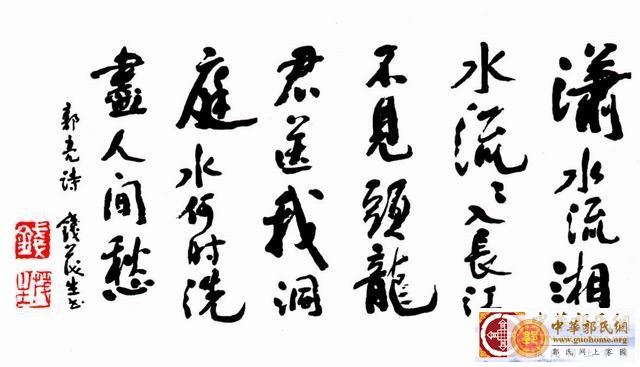 瀟水流湘
水流々入長江
不見頭龍
君送我洞
庭水何时洗
盡人间愁
郭亮诗 錢茂生书
錢
茂生
中華郭氏
www.guohome.org
郭氏网上家园